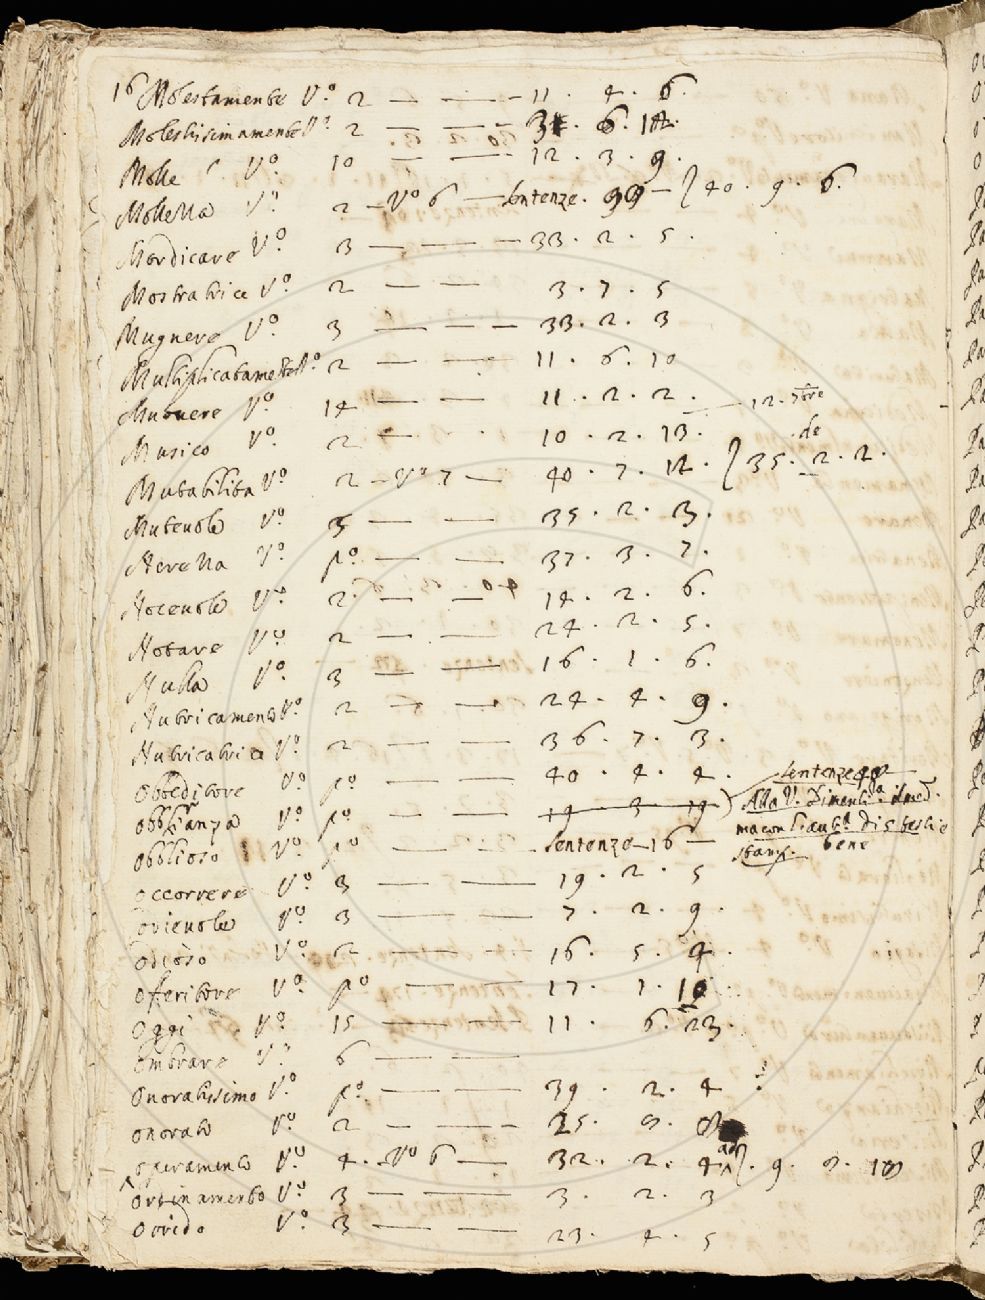 16 Molestamente V.º 2 — — 11 . 4 . 6.
Molestissimamente V.º 2 — — 6 . 12.
Molle V.º 10 — — 12 . 3 . 9 .
Mollezza V.º 2 — Vº 6 — sentenze . 99 — } 40 . 9 . 6.
Mordicare V.º 3 — — — 33 . 2 . 5 .
Mostratrice V.º 2 — — 3 . 7 . 5
Mugnere V.º 3 — — — 33 . 2 . 3
Multiplicatamente V.º 2 — — 11 . 6 . 10
Mutuere V.º 14 — — 11 . 2 . 2 . — 12 .
Musico V.º 2 — — 10 . 2 . 13 . de
Mutabilita V.º 2 — Vº 7 — 40 . 7 . 12 . } 35 . 2 . 2 .
Mutevole V.º 3 — — 35 . 2 . 3 .
Nerezza V.º pº — — 37 . 3 . 7 .
Nocevole V.º 2 . — — 14 . 2 . 6 .
Notare V.º 2 — — 24 . 2 . 5 .
Nulla V.º 3 — — 16 . 1 . 6 .
Nutricamento V.º 2 — — 24 . 4 . 9 .
Nutricatrice V.º 2 — — 36 . 7 . 3 .
Obbeditore V.º pº — — 40 . 4 . 4 . sentenze 40
Obblianza V.º pº — — 14 3 19 ) Alla V.
Obblioso V.º pº — — sentenze — 16 — bene
Occorrere V.º 3 — — 19 . 2 . 5
Odievole V.º 3 — — 7 . 2 . 9 .
Odioso V.º 2 — — 16 . 5 . 4 .
Offeritore V.º pº — — 17 . 1 . 10
Oggi V.º 15 — — 11 . 6 . 23 .
Ombrare V.º 6 — —
Onoratissimo V.º pº — — 39 . 2 . 4
Onorato V.º 2 — — 25 .
Operamento V.º 4 . Vº 6 — 32 . 2 . 4 . 9 .
Ordinamento V.º 3 — — 3 . 2 . 3
Orrido V.º 3 — — 23 . 4 . 5